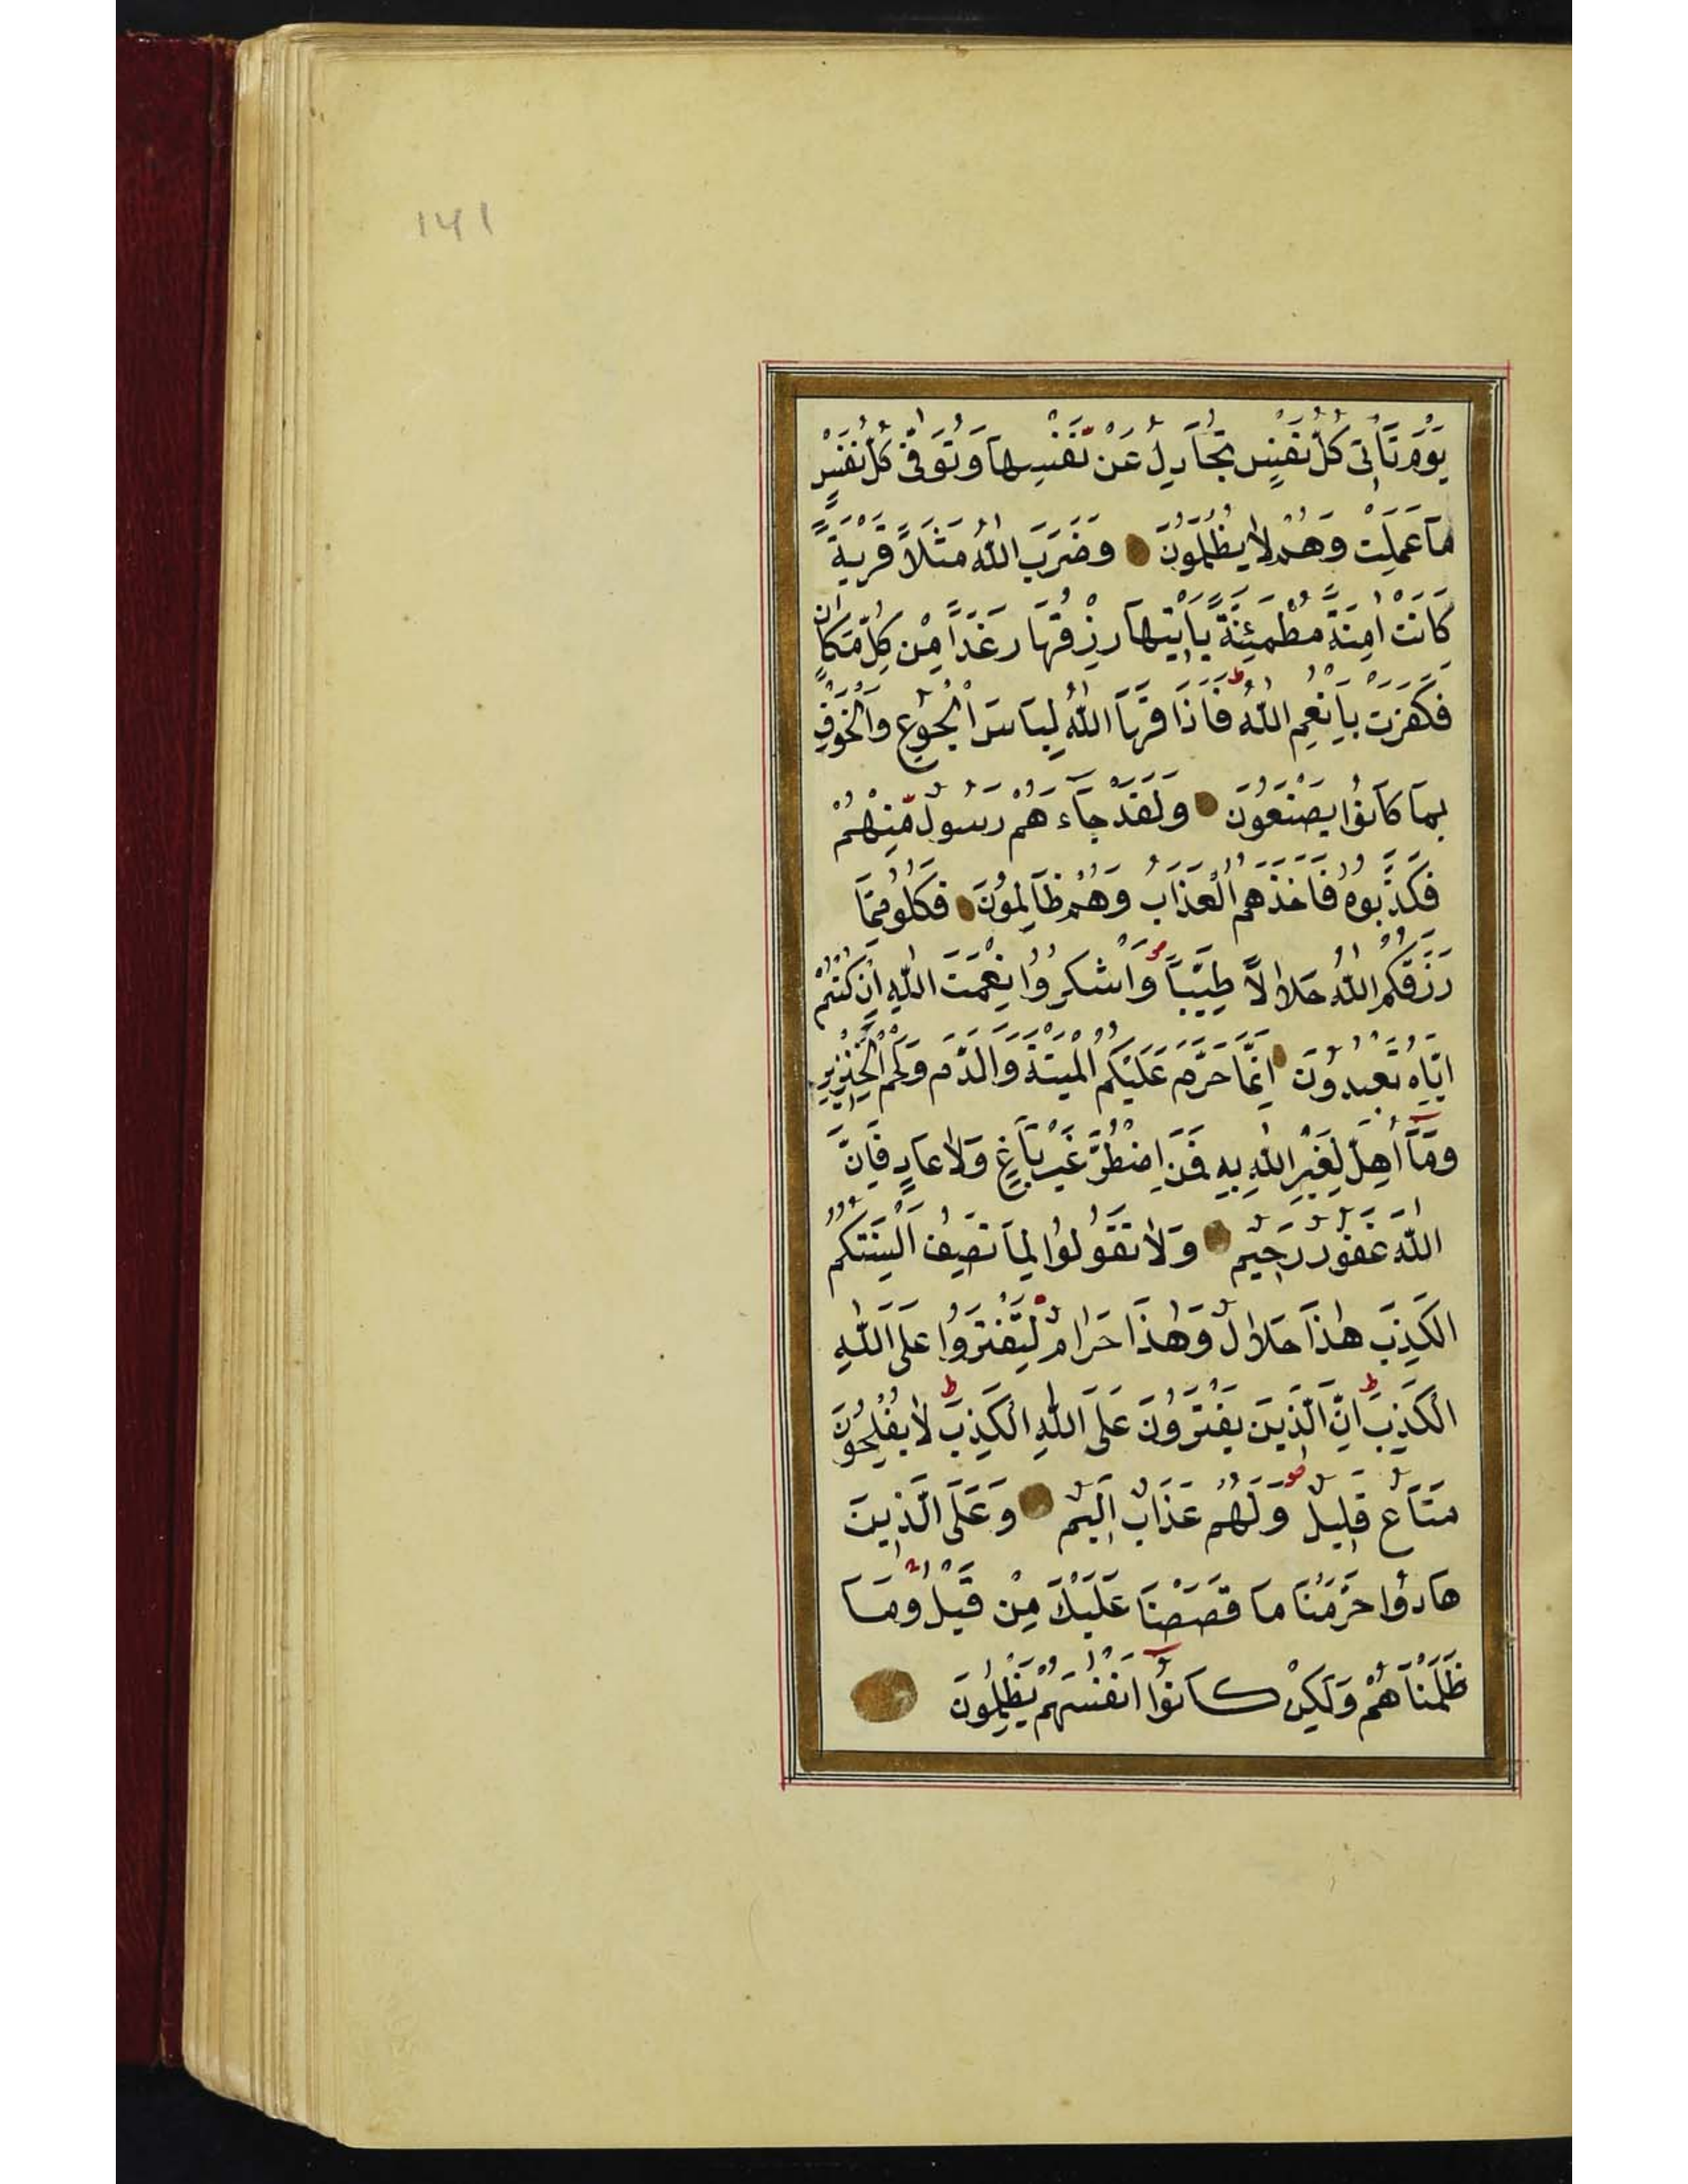 141
يَوْمَ تَأْتِي كُلُّ نَفْسٍ تُجَادِلُ عَنْ نَفْسِهَا وَتُوَفَّى كُلُّ نَفْسٍ
مَا عَمِلَتْ وَهُمْ لَا يُظْلَمُونَ وَضَرَبَ اللّٰهُ مَثَلًا قَرْيَةً
كَانَتْ اٰمِنَةً مُطْمَئِنَّةً يَأْتِيهَا رِزْقُهَا رَغَدًا مِنْ كُلِّ مَكَانٍ
فَكَفَرَتْ بِاَنْعُمِ اللّٰهِ ط فَاَذَاقَهَا اللّٰهُ لِبَاسَ الْجُوعِ وَالْخَوْفِ
بِمَا كَانُوا يَصْنَعُونَ وَلَقَدْ جَاءَهُمْ رَسُولٌ مِنْهُمْ
فَكَذَّبُوهُ فَاَخَذَهُمُ الْعَذَابُ وَهُمْ ظَالِمُونَ فَكُلُوا مِمَّا
رَزَقَكُمُ اللّٰهُ حَلَالًا طَيِّبًا وَاشْكُرُوا نِعْمَتَ اللّٰهِ اِنْ كُنْتُمْ
اِيَّاهُ تَعْبُدُونَ اِنَّمَا حَرَّمَ عَلَيْكُمُ الْمَيْتَةَ وَالدَّمَ وَلَحْمَ الْخِنْزِيرِ
وَمَا اُهِلَّ لِغَيْرِ اللّٰهِ بِهِ فَمَنِ اضْطُرَّ غَيْرَ بَاغٍ وَلَا عَادٍ فَاِنَّ
اللّٰهَ غَفُورٌ رَحِيمٌ وَلَا تَقُولُوا لِمَا تَصِفُ اَلْسِنَتُكُمُ
الْكَذِبَ هٰذَا حَلَالٌ وَهٰذَا حَرَامٌ لِتَفْتَرُوا عَلَى اللّٰهِ
الْكَذِبَ ط اِنَّ الَّذِينَ يَفْتَرُونَ عَلَى اللّٰهِ الْكَذِبَ لَا يُفْلِحُونَ ط
مَتَاعٌ قَلِيلٌ وَلَهُمْ عَذَابٌ اَلِيمٌ وَعَلَى الَّذِينَ
هَادُوا حَرَّمْنَا مَا قَصَصْنَا عَلَيْكَ مِنْ قَبْلُ وَمَا
ظَلَمْنَاهُمْ وَلٰكِنْ كَانُوا اَنْفُسَهُمْ يَظْلِمُونَ